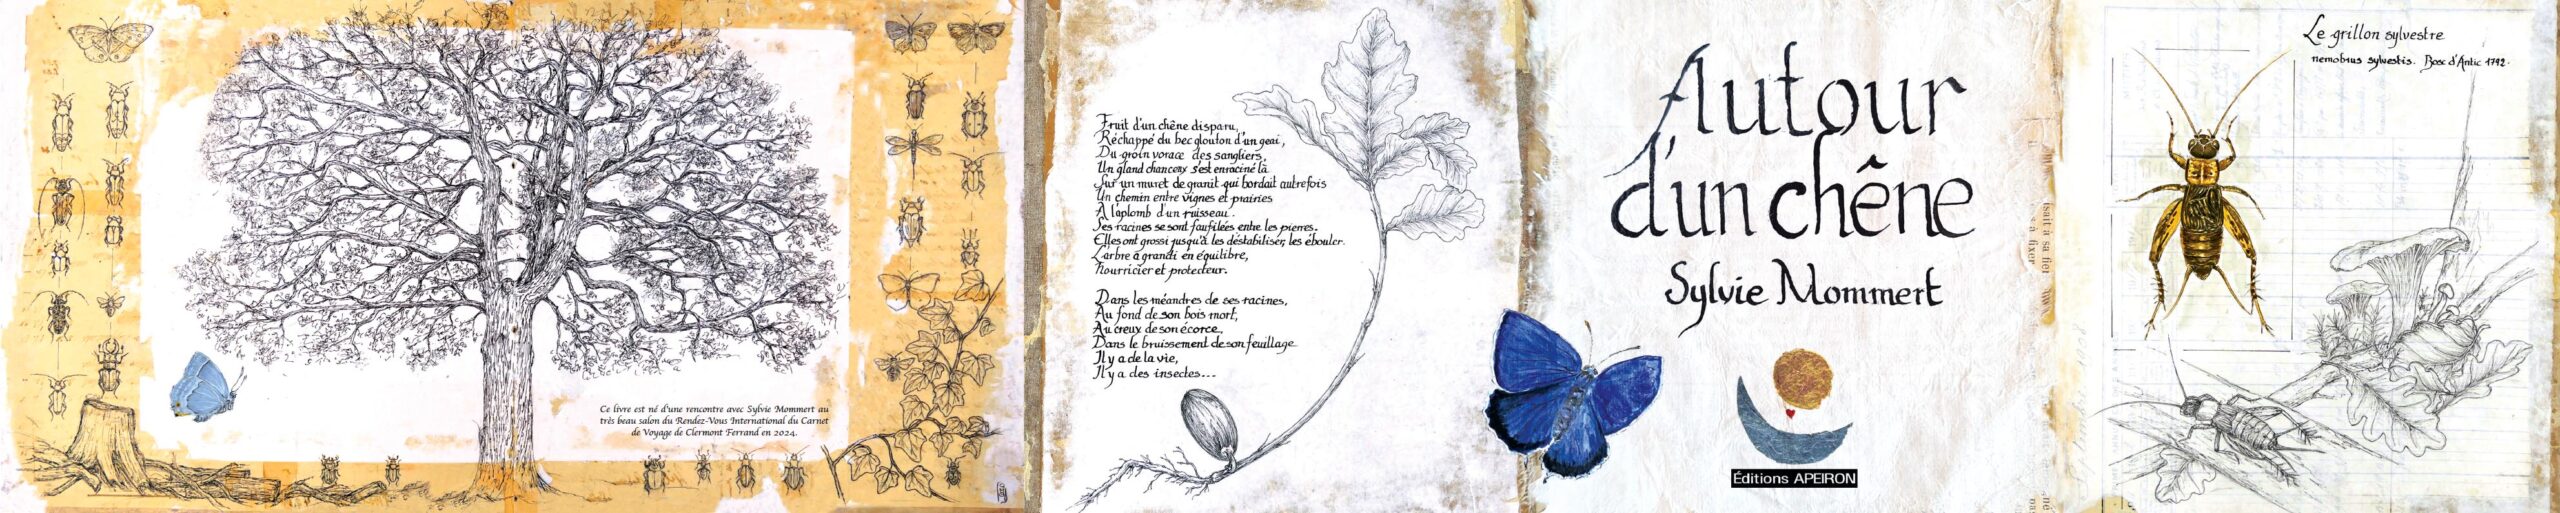 Ce livre est né d'une rencontre avec Sylvie Mommert au
très beau salon du Rendez-Vous International du Carnet
de Voyage de Clermont Ferrand en 2024.
Fruit d'un chêne disparu,
Réchappé du bec glouton d'un geai,
Du groin vorace des sangliers,
Un gland chanceux s'est enraciné là
Sur un muret de granit qui bordait autrefois
Un chemin entre vignes et prairies
A l'aplomb d'un ruisseau.
Ses racines se sont faufilées entre les pierres.
Elles ont grossi jusqu'à les déstabiliser, les ébouler.
L'arbre a grandi en équilibre,
Nourricier et protecteur.
Dans les méandres de ses racines,
Au fond de son bois mort,
Au creux de son écorce,
Dans le bruissement de son feuillage
Il y a de la vie,
Il y a des insectes...
Autour
d'un chêne
Sylvie Mommert
Éditions APEIRON
tsait à sa fiet
s à fixer
Le grillon sylvestre
nemobius sylvestis. Bosc d'Antic 1792.